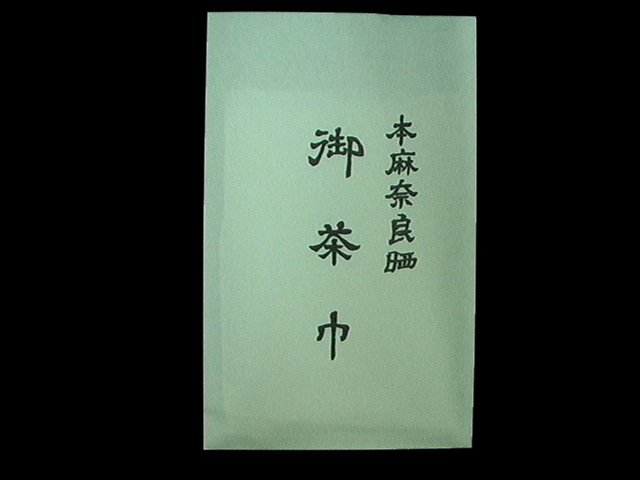 本麻奈良晒
御茶巾